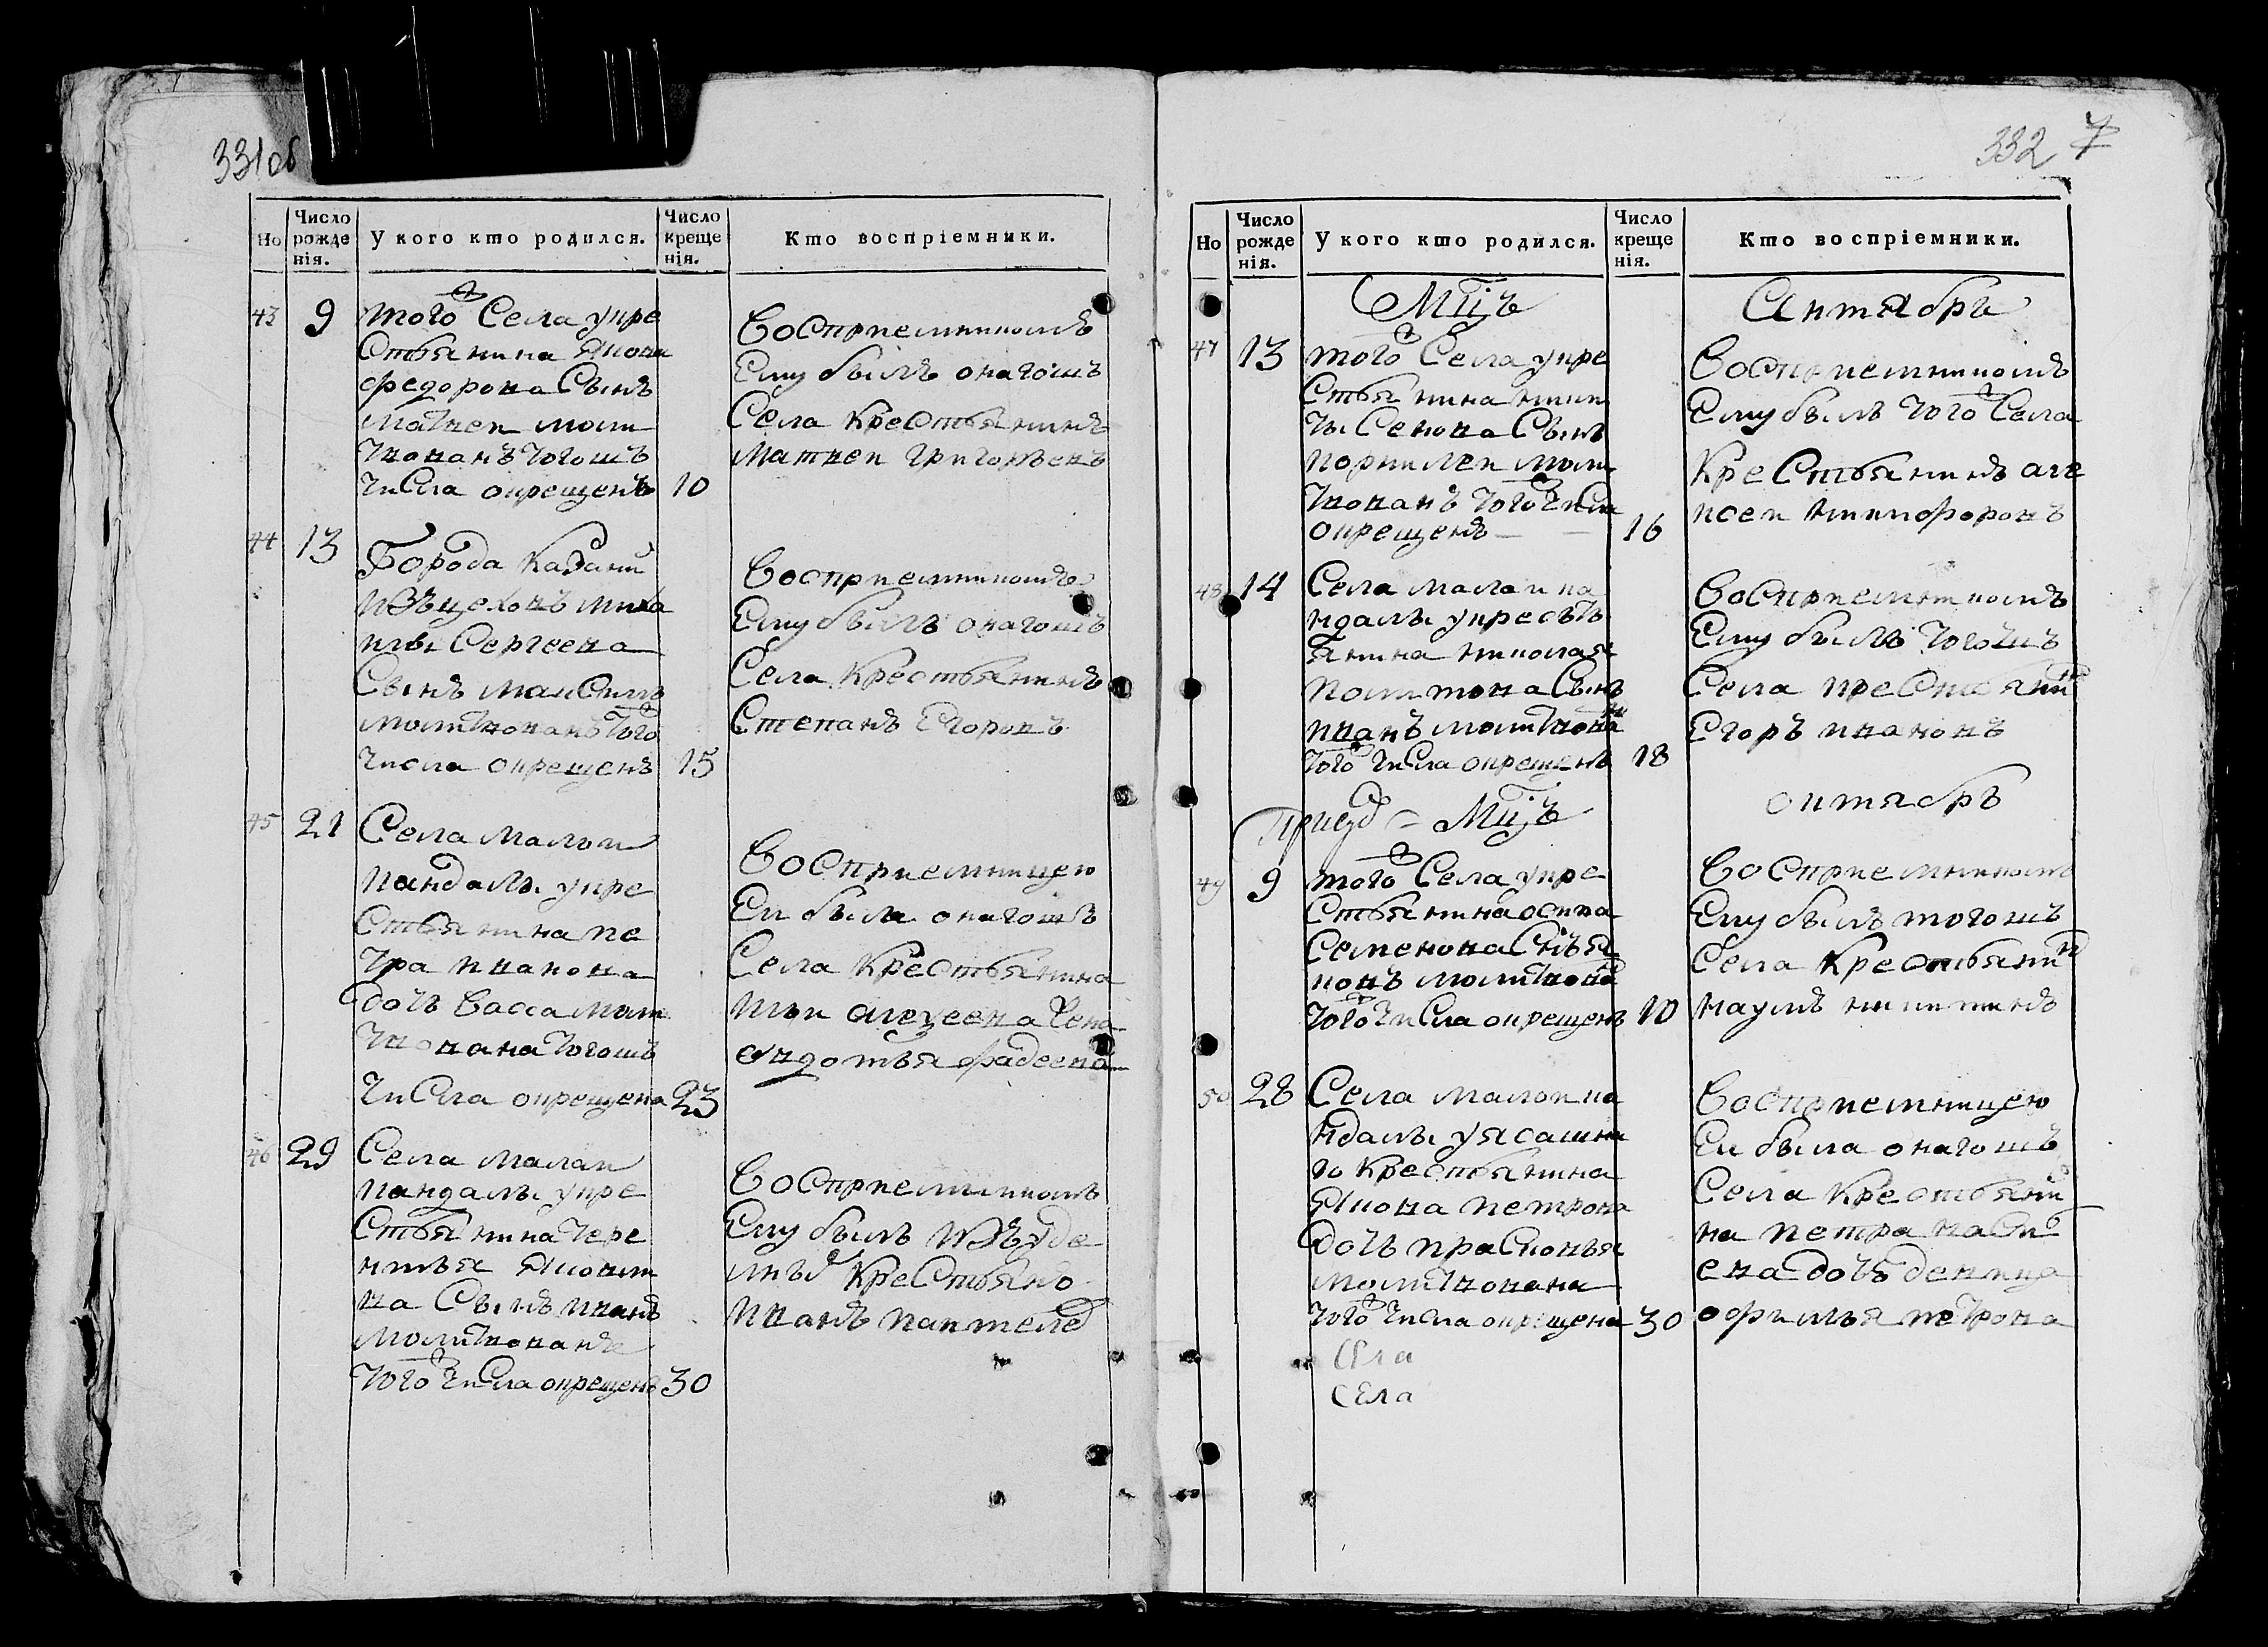 331об
Но
Число рожденія.
У кого кто родился.
Число крещенія.
Кто воспріемники.
43
9
того Села укре
Стьянина Якова
федорова Сынъ
матвеи моли
твованъ тогожъ
числа окрещенъ
10
Восприемникомъ
Ему былъ онагожъ
Села Крестьянинъ
матвеи григорьевъ
44
13
Города Казани
изъ цеховъ миха
илы Сергеева
Сынъ максимъ
молитвованъ того
числа окрещенъ
15
Восприемникомъ
Ему былъ онагожъ
Села Крестьянинъ
Степанъ Егоровъ
45
21
Села малои
кандалы укре
Стьянина пе
тра иванова
дочь васса моли
твована тогожъ
числа окрещена
23
Восприемницею
Еи была онагожъ
Села Крестьянина
ильи алеѯеева жена
авдотья фадеева
46
29
Села малаи
кандалы укре
Стьянина тере
нтья Яковли
ва Сынъ иванъ
молитвованъ
того числа окрещенъ
30
Восприемникомъ
Ему былъ изъ уде
лныхъ Крестьянъ
иванъ пантелеевъ
332
7
Но
Число рожденія.
У кого кто родился.
Число крещенія.
Кто воспріемники.
Мцъ
Сентябрь
47
13
того Села укре
Стьянина ники
ты Сенова Сынъ
корнилеи моли
твованъ того числа
окрещенъ
16
Восприемникомъ
Ему былъ того Села
Крестьянинъ але
ксеи никифоровъ
48
14
Села малаи ка
ндалы укресть
янина николая
политова Сынъ
иванъ молитвованъ
того числа окрещенъ
18
Восприемникомъ
Ему былъ тогожъ
Села крестьянинъ
Егоръ ивановъ
Мцъ
октябрь
49
9
того Села укре
Стьянина осипа
Семенова Снъ я
ковъ молитвованъ
того числа окрещенъ
10
Восприемникомъ
Ему былъ тогожъ
Села Крестьянинъ
наумъ никитинъ
50
28
Села малои ка
ндалы уясашна
го Крестьянина
Якова петрова
дочь прасковья
молитвована
того числа окрещена
30
Восприемницею
Еи была онагожъ
Села Крестьяни
на петра васи
ева дочь девица
офимья петрова
Села
Села